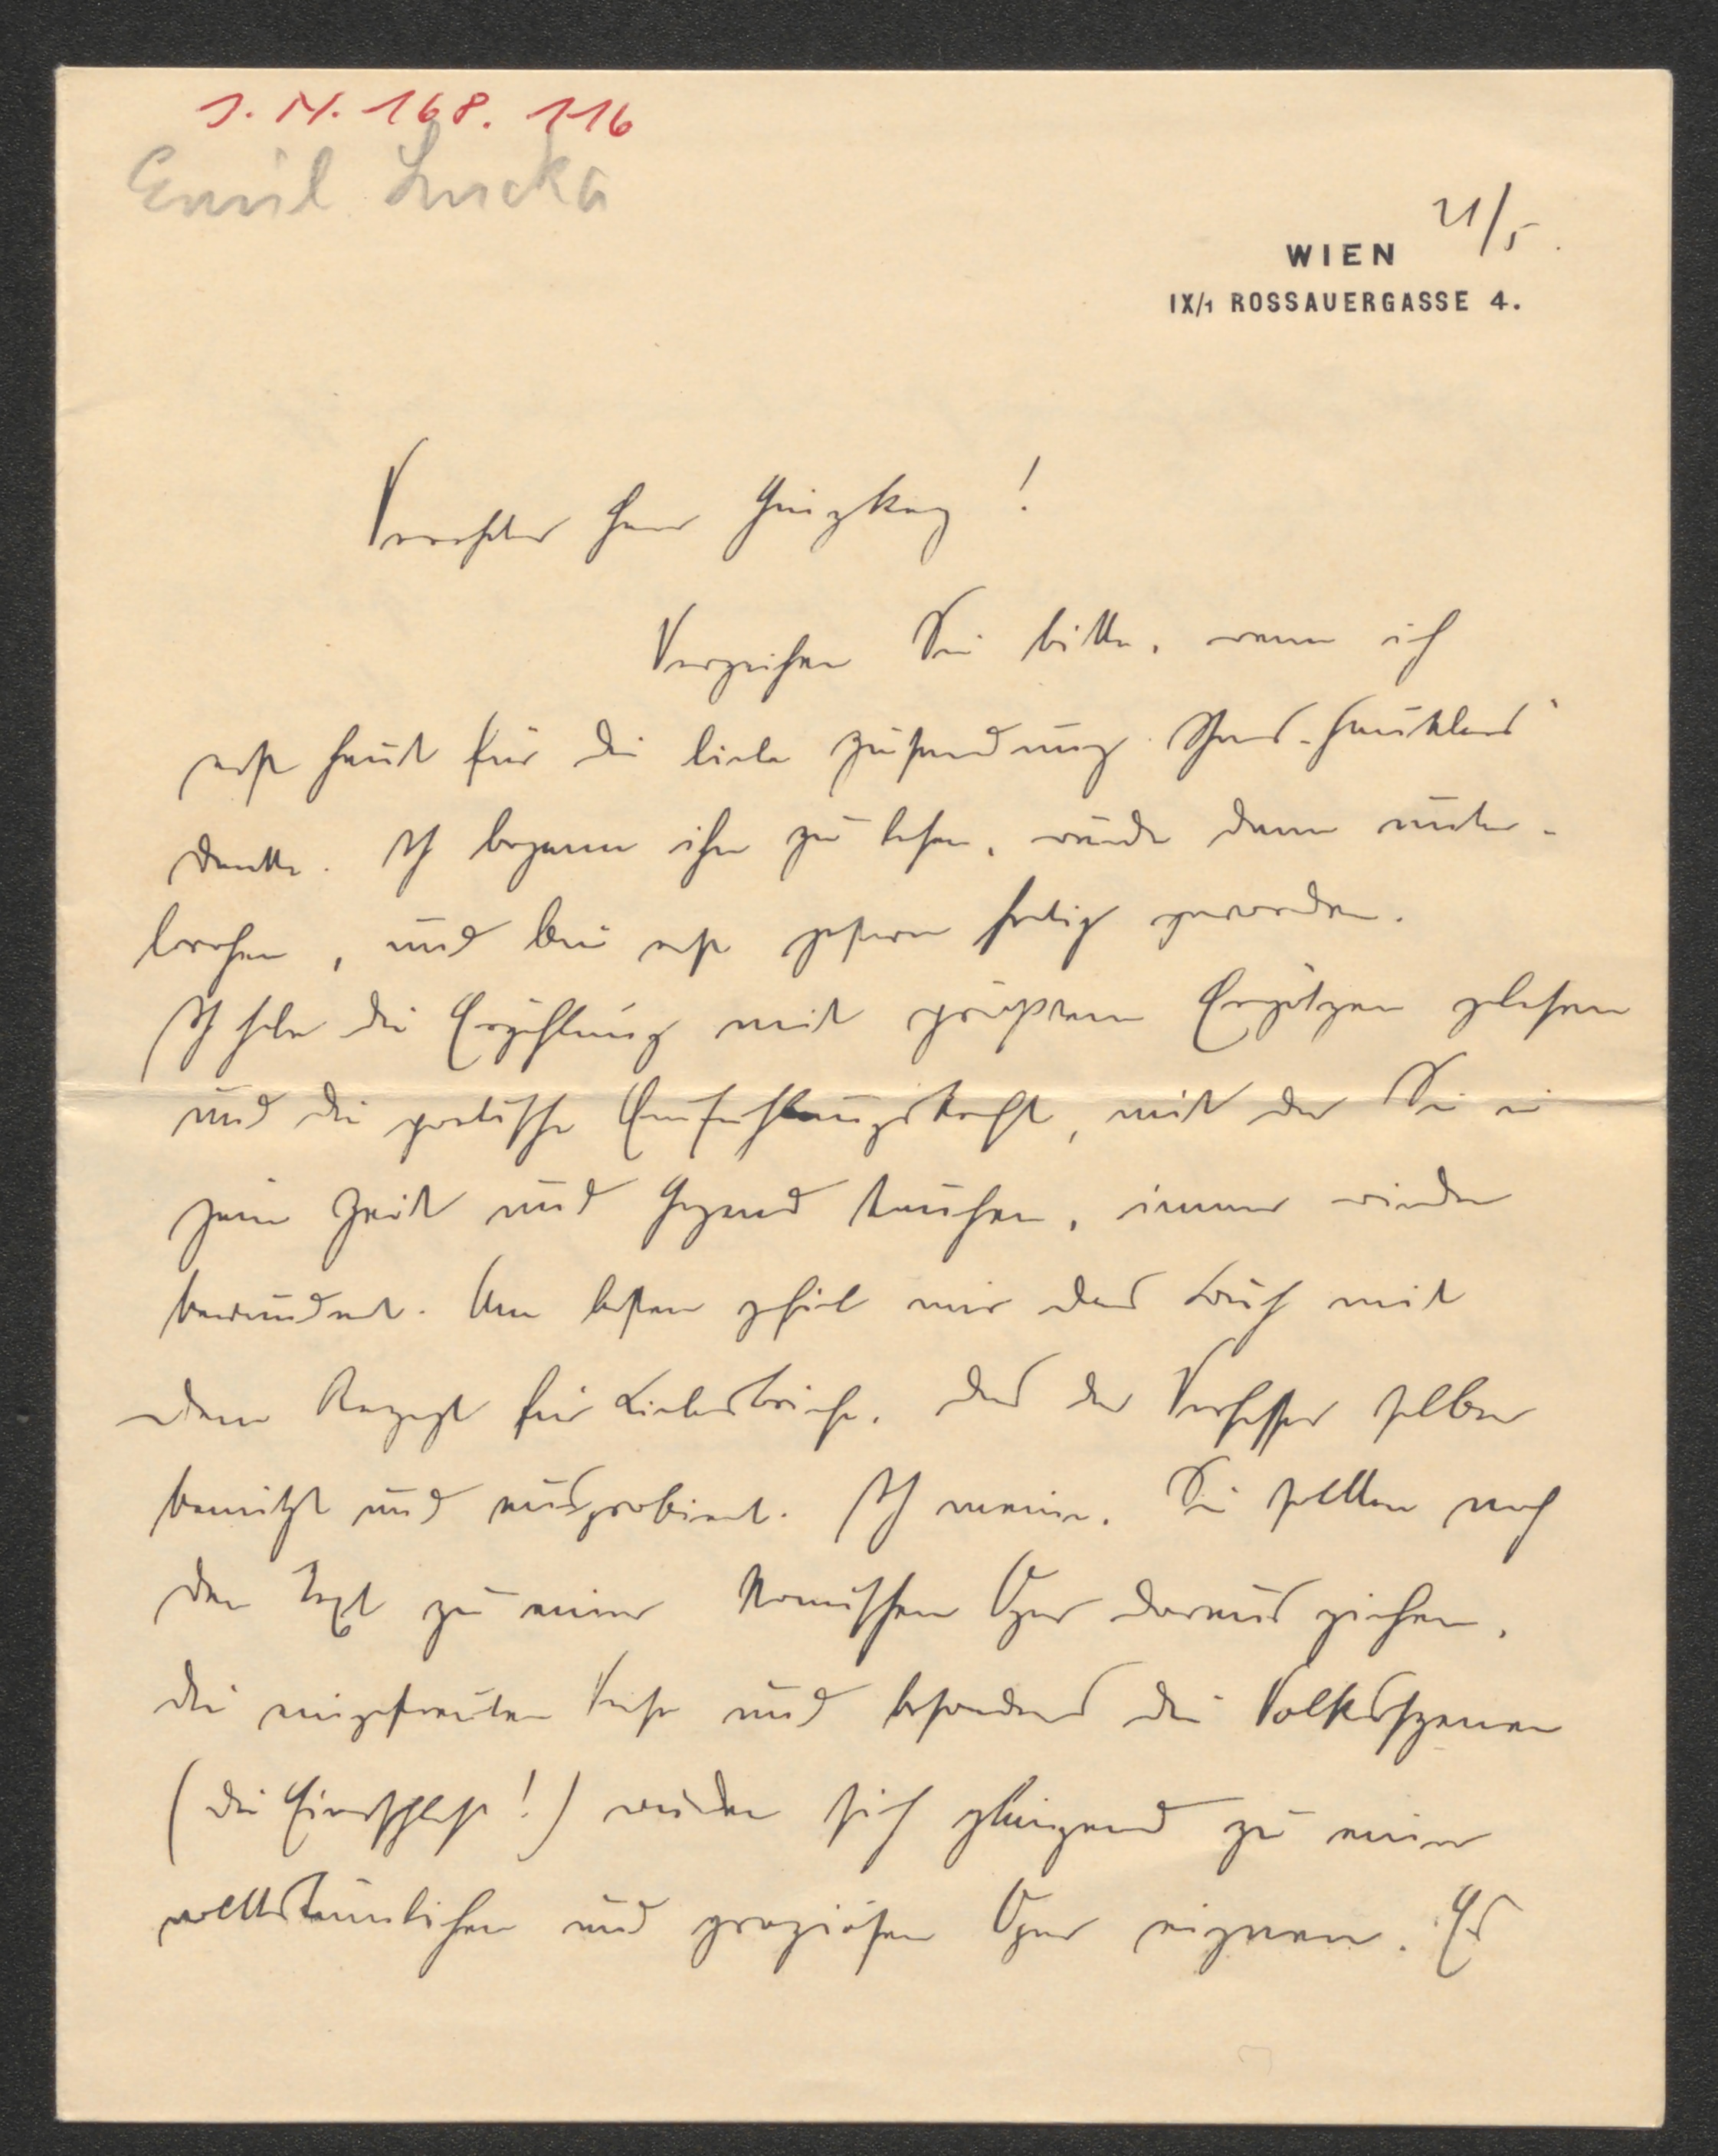 I. N. 168. 116
Emil Lucka
21/5.
WIEN
IX/1 ROSSAUERGASSE 4.
Verehrter Herr Ginzkey!
Verzeihen Sie bitte, wenn ich
erst heut für die liebe Zusendung
danke. Ich begann ihn zu lesen, wurde dann unter-
brochen, und bin erst gestern fertig geworden.
Ich habe die Erzählung mit größtem Ergötzen gelesen
und die poetische Einfühlungskraft, mit der Sie in
jene Zeit und Gegend tauchen, immer wieder
bewundert. Am besten gefiel mir das Buch mit
dem Rezept für Liebesbriefe, das der Verfasser selber
benützt und ausprobiert. Ich meine, Sie sollten noch
den Text zu einer komischen Oper daraus ziehen,
die eingestreuten Verse und besonders die Volksszenen
(die !) würden sich glänzend zu einer
volkstümlichen und graziösen Oper eignen. Es